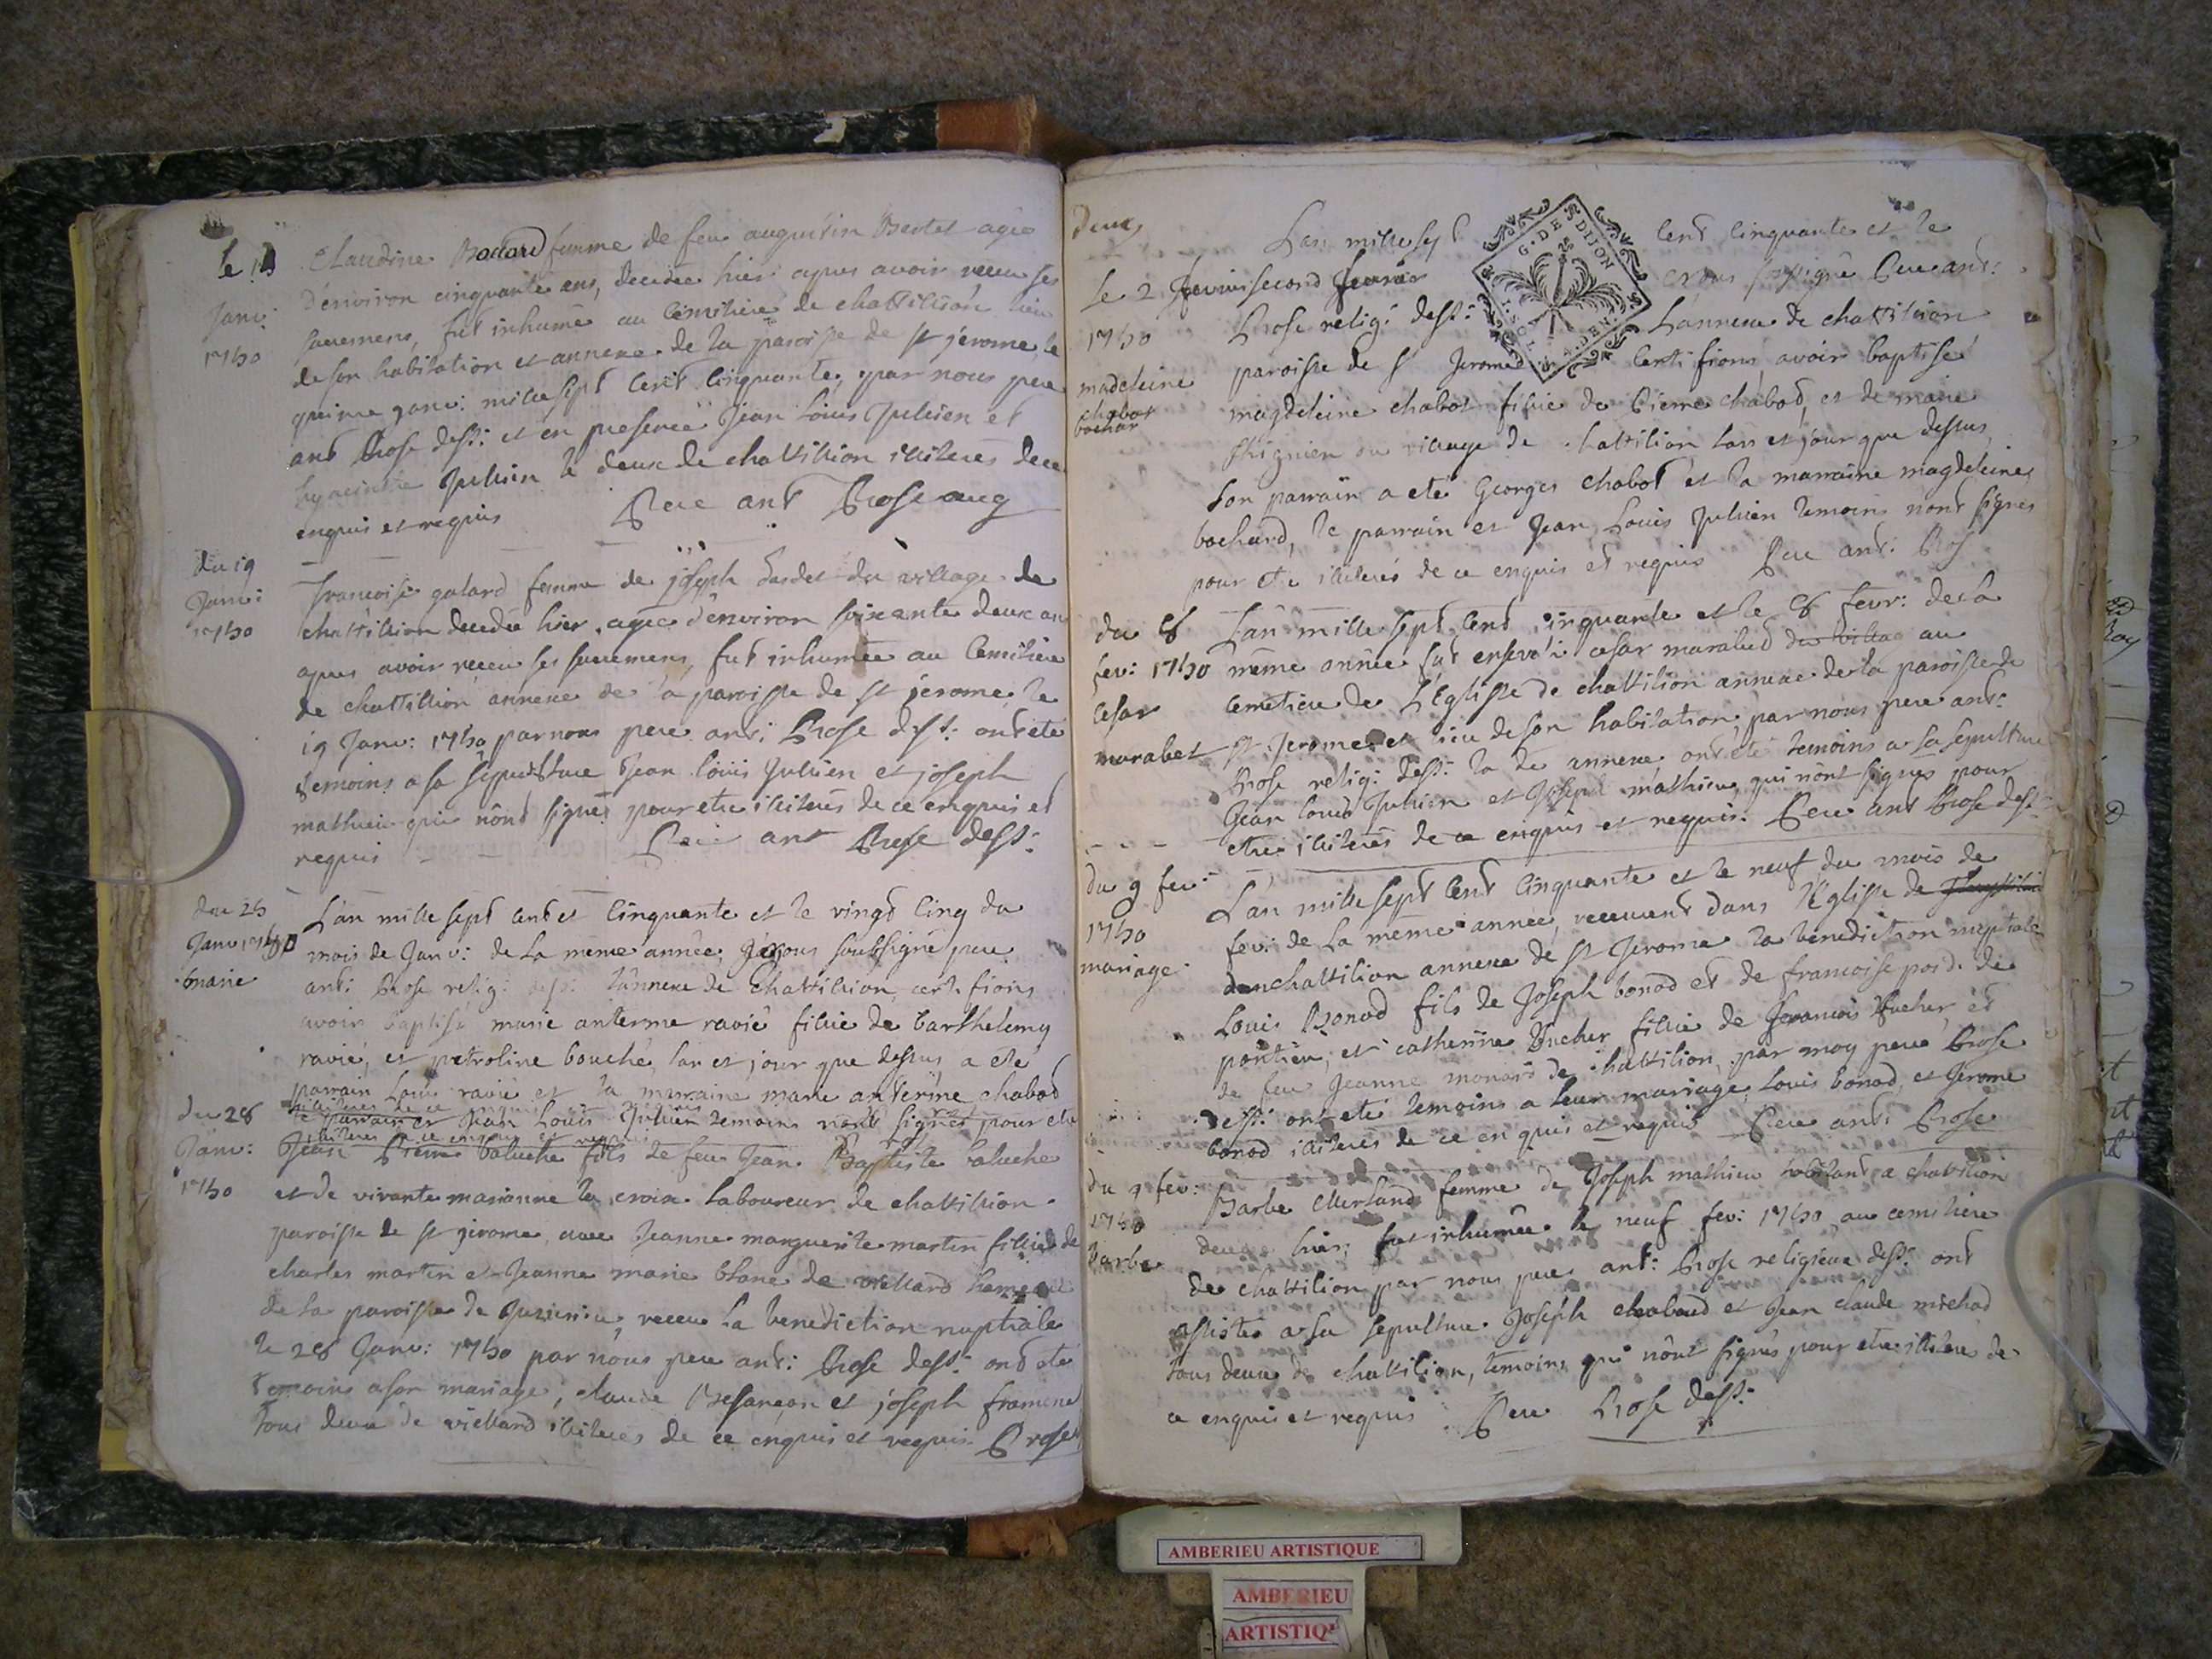 le 15 Claudine Bottard femme de feu augustin Bertet agée
Janv: d'environ cinquante ans, decedée hier apres avoir receu ses
1750 sacremens, fut inhumé au cimitiere de chattillion lieu
de son habitation et annexe de la paroisse de st jerome le
quinze janv: mille sept cent cinquante, par nous pere
ant Prose dess: et en presence Jean Louis Jullien et
hyacinthe Jullien le deux de chattillion illiterés de ce
enquis et requis Pere ant Prose aug
du 19
Janv: francoise galard femme de joseph dardet du village de
1750 chattillion decedée hier, agée d'environ soixante deux an
apres avoir receu ses sacremens, fut inhumée au Cemitiere
de chattillion annexe de la paroisse de st jerome, le
19 Janv: 1750 par nous pere ant: Prose dess: ont eté
temoins a sa sepulture Jean louis Jullien et joseph
mathieu qui nônt signés pour etre illiterés de ce enquis et
requis Pere ant Prose dess:
du 25 L'an mille sept cent et Cinquante et le vingt Cinq du
Janv: 1750 mois de Janv: de la même année, nous soussigné pere
marie ant: Prose relig: dess: L'annexe de Chattillion, certifions
avoir baptisé marie anterme ravié fillie de barthelemy
ravié, et petroline bouché, lan et jour que dessus, a eté
parrain Louis ravié et la marraine marie anterme chabod
le parrain et Jean Louis Jullien temoins nônt signés pour etre
illiterés de ce enquis et requis
du 28
Janv: Jean Pierre baluche fils de feu Jean Baptiste baluche
1750 et de vivante marianne la croix laboureur de chattillion
paroisse de st jerome, avec Jeanne marguerite martin fillie de
charles martin et Jeanne marie blanc de viellard hameau
de la paroisse de Jujurieu, receu la benediction nuptiale
le 28 Janv: 1750 par nous pere ant: Prose dess: ont eté
temoins a son mariage, claude Besançon et joseph framene
tous deux de viellard illiterés de ce enquis et requis Prose
deux
Lan mille sept cent cinquante et le
G. DE DIJON
le 2 second fevrier nous soussigné Pere ant:
1750 Prose relig: dess: L'annexe de chattillion
madeleine paroisse de st Jerome Certifions avoir baptisé
chabot magdeleine chabot fillie de Pierre chabod, et de marie
bochar du village de chattilion lan et jour que dessus
son parrain a eté Georges chabot et la marraine magdeleine
bochard, le parrain et Jean Louis Jullien temoins nont signés
pour etre illiterés de ce enquis et requis Pere ant: Pros
du 8 L'an mille sept Cent cinquante et le 8 fevr: de la
fev: 1750 même année fut enseveli cesar marabed du villag au
Cesar Cemetiere de L'Eglisse de chattilion annexe de la paroisse de
marabet st Jerome, et lieu de son habitation, par nous pere ant:
Prose relig: dess: la de annexe, ont eté temoins a sa sepulture
Jean louis Jullien et Joseph mathieu, qui nônt signés pour
etre illiterés de ce enquis et requis. Pere ant Prose dess:
du 9 fev: L'an mille sept Cent Cinquante et le neuf du mois de
1750 fev: de la même année, receuvent dans l'Eglisse de
mariage chattilion annexe de st Jerome la benediction nuptiale
Louis Bonod fils de Joseph bonod et de francoise de
pontieu, et catherine Bucher fillie de francois Bucher, et
de feu Jeanne monard de chattilion, par moy pere Prose
dess: ont eté temoins a leur mariage, Louis bonod, et Jerome
bonod illiterés de ce enquis et requis Pere ant: Prose
du 9 fev: Barbe femme de Joseph mathieu habitant a chattilion
1750 decedée hier, fut inhumée le neuf fev: 1750, au cemitiere
barbe de chattilion par nous pere ant: Prose religieux dess: ont
assistés a sa sepulture Joseph chabaud et Jean claude michod
tous deux de chattilion, temoins qui nônt signés pour etre illiteres de
ce enquis et requis Pere Prose dess:
AMBERIEU ARTISTIQUE
AMBERIEU
ARTISTIQ